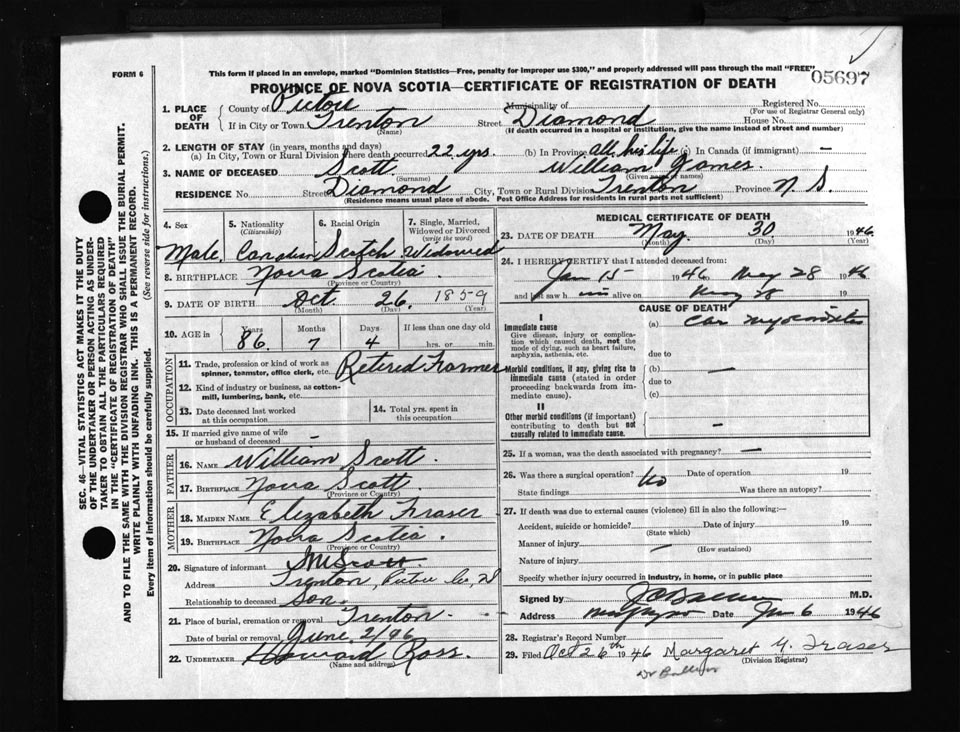 FORM 6
This form if placed in an envelope, marked "Dominion Statistics—Free, penalty for improper use $300," and properly addressed will pass through the mail "FREE"
05697
PROVINCE OF NOVA SCOTIA—CERTIFICATE OF REGISTRATION OF DEATH
1. PLACE OF DEATH { County of Pictou Municipality of Registered No.
(For use of Registrar General only)
If in City or Town Trenton Street Diamond House No.
(Name) (If death occurred in a hospital or institution, give the name instead of street and number)
2. LENGTH OF STAY (in years, months and days)
(a) In City, Town or Rural Division where death occurred 22 yrs. (b) In Province All his life (c) In Canada (if immigrant) —
3. NAME OF DECEASED Scott William James.
(Surname) (Given name or names)
RESIDENCE No. Street Diamond City, Town or Rural Division Trenton Province N S.
(Residence means usual place of abode. Post Office Address for residents in rural parts not sufficient)
4. Sex 5. Nationality (Citizenship) 6. Racial Origin 7. Single, Married, Widowed or Divorced (write the word)
Male Canadian Scotch Widowed
8. BIRTHPLACE Nova Scotia
(Province or Country)
9. DATE OF BIRTH Oct. 26, 1859
(Month) (Day) (Year)
10. AGE in { Years Months Days If less than one day old
86. 7 4 hrs. or min.
OCCUPATION
11. Trade, profession or kind of work as spinner, teamster, office clerk, etc. Retired Farmer
12. Kind of industry or business, as cotton-mill, lumbering, bank, etc.
13. Date deceased last worked at this occupation
14. Total yrs. spent in this occupation
15. If married give name of wife or husband of deceased —
FATHER
16. NAME William Scott.
17. BIRTHPLACE Nova Scott.
(Province or Country)
MOTHER
18. MAIDEN NAME Elizabeth Fraser
19. BIRTHPLACE Nova Scotia.
(Province or Country)
20. Signature of informant Scott
Address Trenton, Pictou Co, NS
Relationship to deceased Son.
21. Place of burial, cremation or removal Trenton
Date of burial or removal June 2/46
22. UNDERTAKER Howard Ross.
(Name and address)
MEDICAL CERTIFICATE OF DEATH
23. DATE OF DEATH May 30 1946
(Month) (Day) (Year)
24. I HEREBY CERTIFY that I attended deceased from:
Jan 15 1946 to May 28 1946
and last saw him alive on May 28 19
CAUSE OF DEATH
I
Immediate cause (a) Myocarditis
Give disease, injury or complication which caused death, not the mode of dying, such as heart failure, asphyxia, asthenia, etc.
due to
Morbid conditions, if any, giving rise to immediate cause (stated in order proceeding backwards from immediate cause). (b) —
due to
(c)
II
Other morbid conditions (if important) contributing to death but not causally related to immediate cause. —
25. If a woman, was the death associated with pregnancy? —
26. Was there a surgical operation? No Date of operation 19
State findings Was there an autopsy?
27. If death was due to external causes (violence) fill in also the following:—
Accident, suicide or homicide? Date of injury 19
(State which)
Manner of injury —
(How sustained)
Nature of injury
Specify whether injury occurred in industry, in home, or in public place
Signed by M.D.
Address Date 6 1946
28. Registrar's Record Number
29. Filed Oct 26th 1946 Margaret Y. Fraser
(Division Registrar)
SEC. 46—VITAL STATISTICS ACT MAKES IT THE DUTY
OF THE UNDERTAKER OR PERSON ACTING AS UNDER-
TAKER TO OBTAIN ALL THE PARTICULARS REQUIRED
IN THE "CERTIFICATE OF REGISTRATION OF DEATH"
AND TO FILE THE SAME WITH THE DIVISION REGISTRAR WHO SHALL ISSUE THE BURIAL PERMIT.
WRITE PLAINLY WITH UNFADING INK. THIS IS A PERMANENT RECORD.
Every item of information should be carefully supplied. (See reverse side for instructions.)